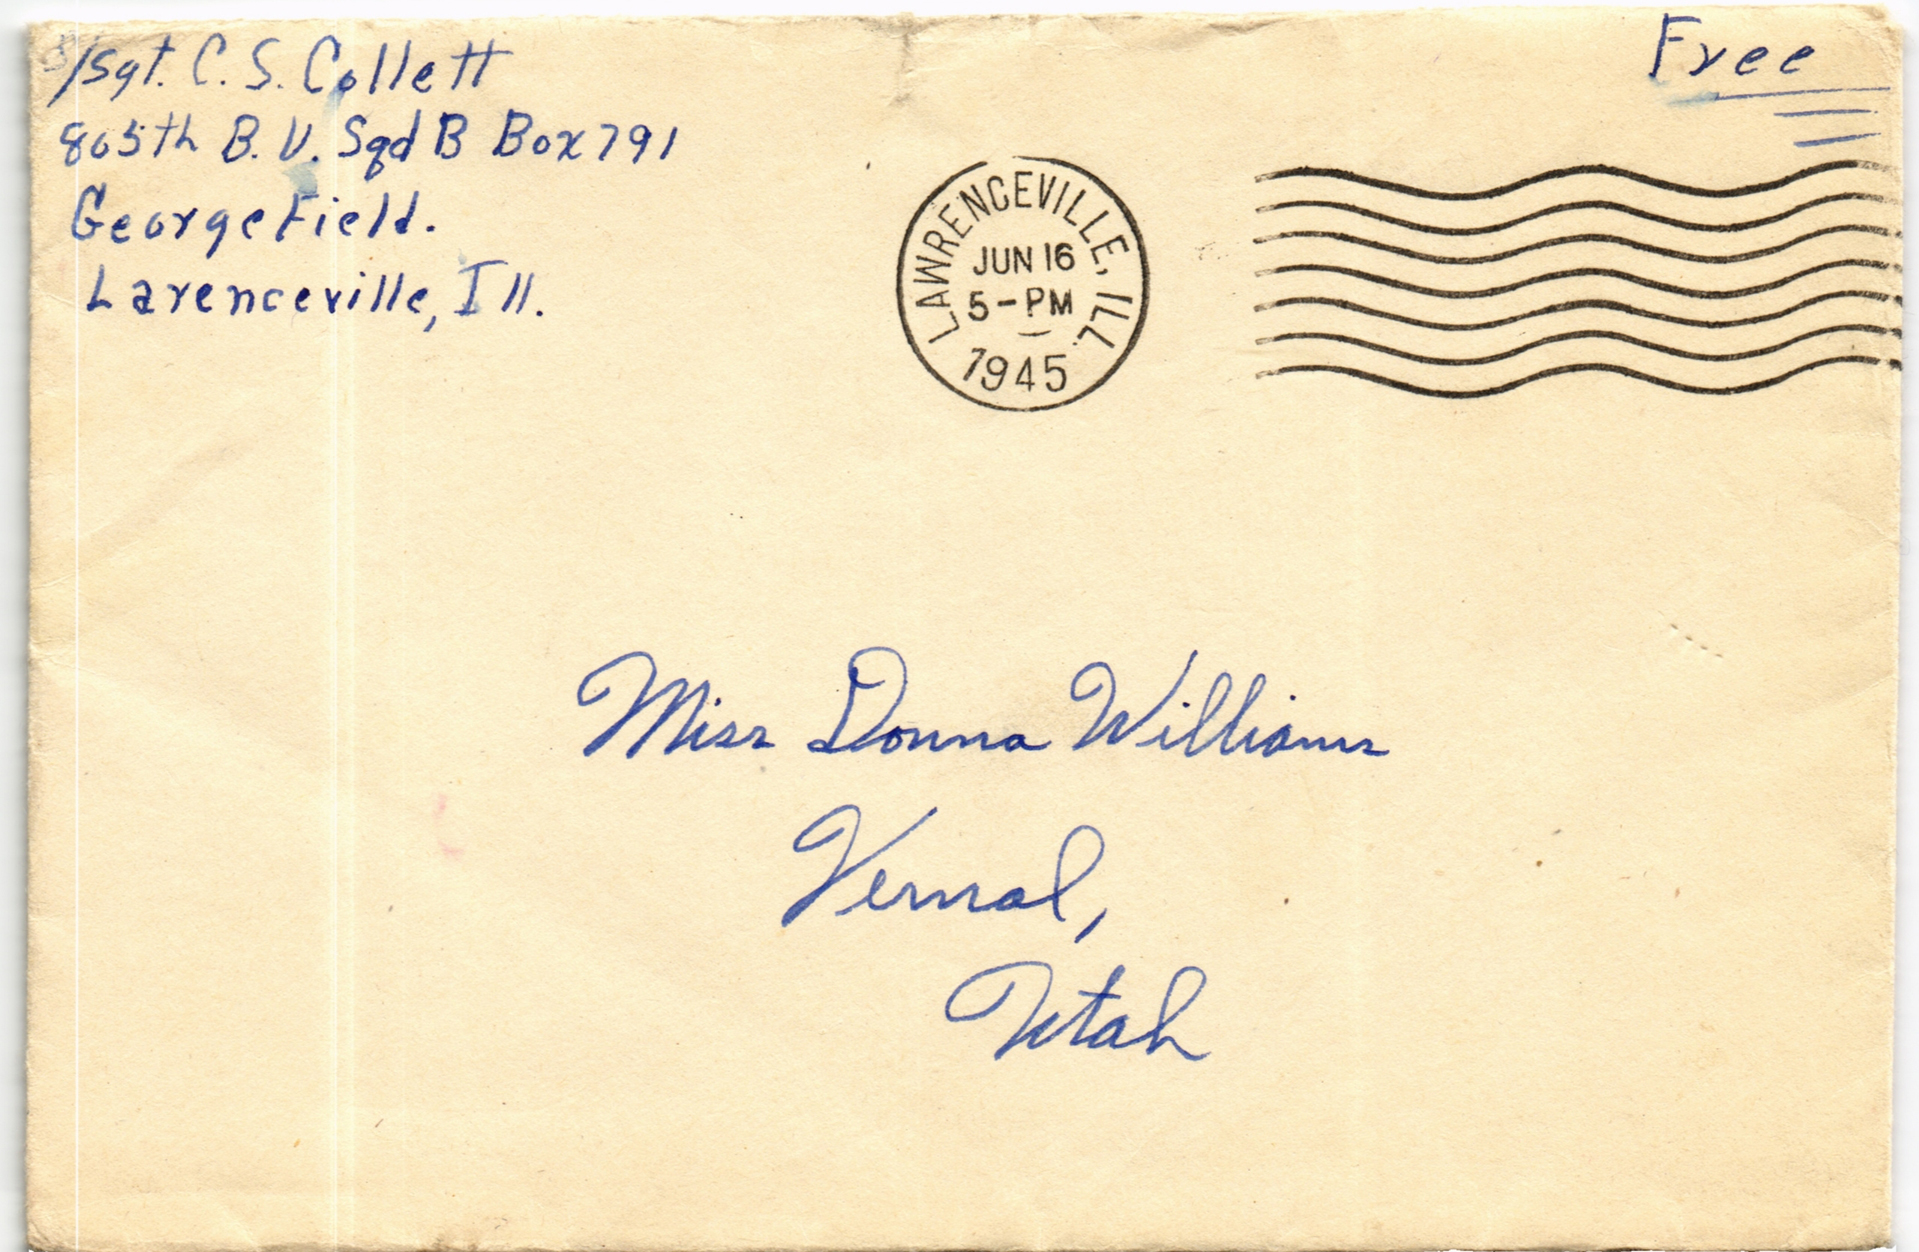 S/Sgt. C. S. Collett
805th B. U. Sqd B Box 791
George Field.
Larenceville, Ill.
Free
LAWRENCEVILLE, ILL.
JUN 16
5-PM
1945
Miss Donna Williams
Vernal,
Utah